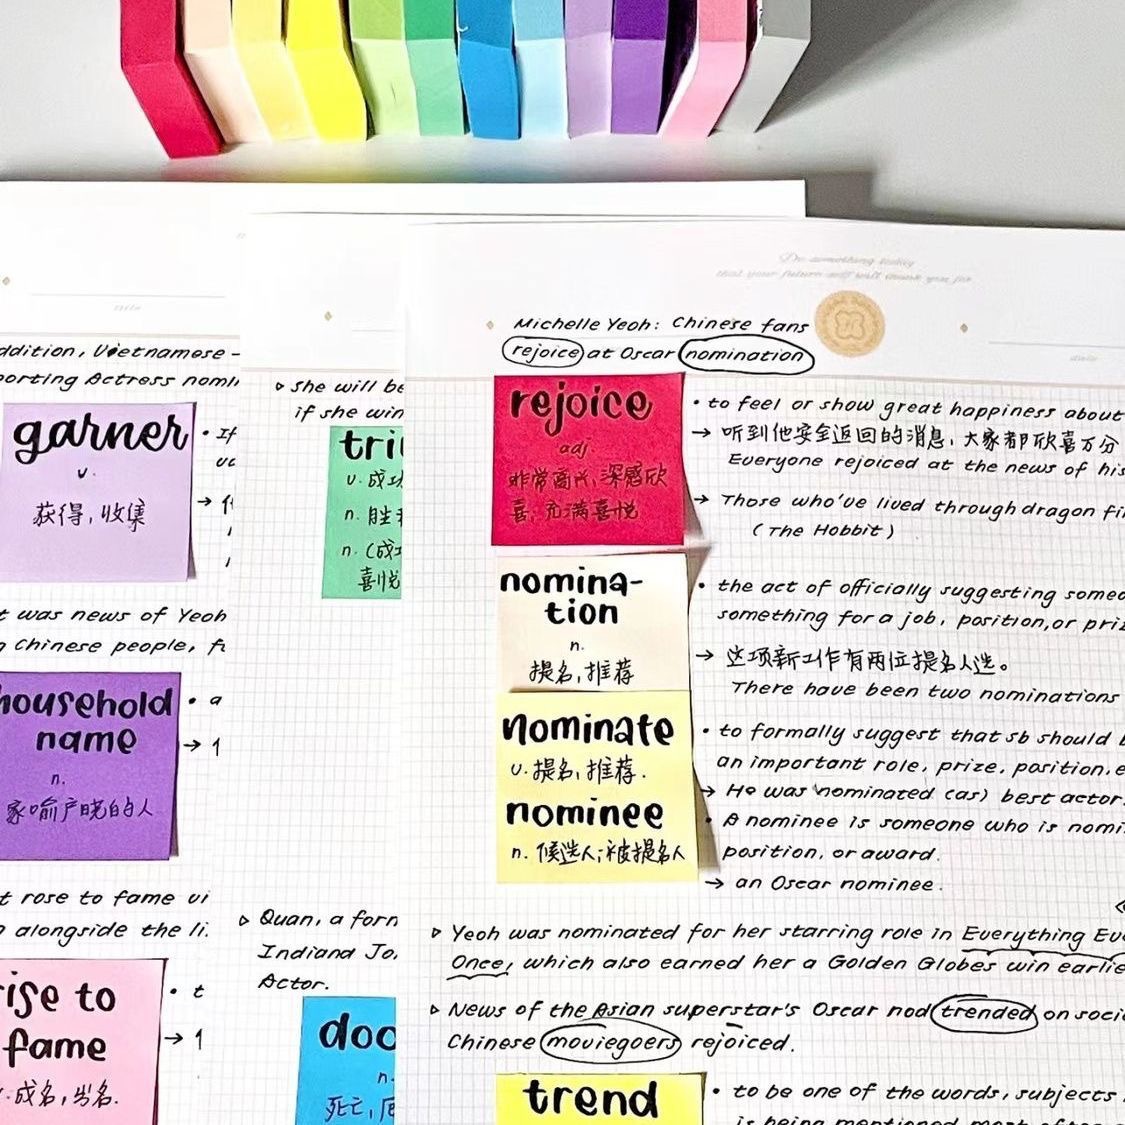 ddition, Vietnamese -
porting Actress nomi
garner
v.
获得, 收集
• If
→
t was news of Yeoh
Chinese people, f
household
name
n.
家喻户晓的人
• a
→ 1
t rose to fame vi
alongside the li.
rise to
fame
v. 成名, 出名.
• t
→ 1
▷ She will be
if she win
tri
v. 成功
n. 胜利
n. (成功
喜悦
▷ Quan, a form
Indiana Jo.
Actor.
doo
n.
死亡,
Do something today
that your future self will thank you for
Michelle Yeoh: Chinese fans
rejoice at Oscar nomination
rejoice
adj.
非常高兴, 深感欣
喜; 充满喜悦
• to feel or show great happiness about
→ 听到他安全返回的消息, 大家都欣喜万分
Everyone rejoiced at the news of his
→ Those who've lived through dragon fi
(The Hobbit)
nomina-
tion
n.
提名, 推荐
• the act of officially suggesting someo
something for a job, position, or priz
→ 这项新工作有两位提名人选。
There have been two nominations
nominate
v. 提名, 推荐.
nominee
n. 候选人; 被提名人
• to formally suggest that sb should b
an important role, prize, position, e
→ He was nominated (as) best actor.
• A nominee is someone who is nomi
position, or award.
→ an Oscar nominee.
▷ Yeoh was nominated for her starring role in Everything Eve
Once, which also earned her a Golden Globes win earlie
▷ News of the Asian superstar's Oscar nod trended on soci
Chinese moviegoers rejoiced.
trend
• to be one of the words, subjects
is being mentioned most often